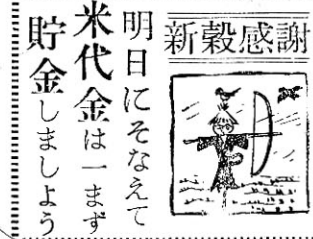 新穀感謝
明日にそなえて
米代金は一まず
貯金しましよう